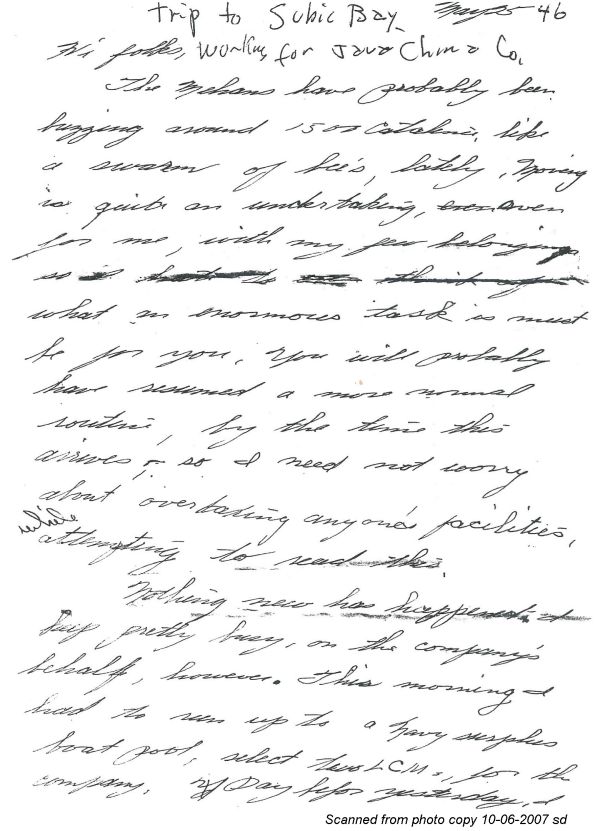 trip to Subic Bay 46
Hi folks, Working for Java China Co.
The Mehans have probably been
buzzing around 1500 Catalina, like
a swarm of bee's, lately, Moving
is quite an undertaking, even
for me, with my few belongings
so
what an enormous task is must
be for you, You will probably
have resumed a more normal
routine, by the time this
arrives, so I need not worry
about overtaxing anyone's facilities,
while
attempting to read this.
Nothing new has happened. I
keep pretty busy, on the company's
behalf, however. This morning I
had to run up to a Navy surplus
boat pool, select two LCMs, for the
company. Day before yesterday, I
Scanned from photo copy 10-06-2007 sd